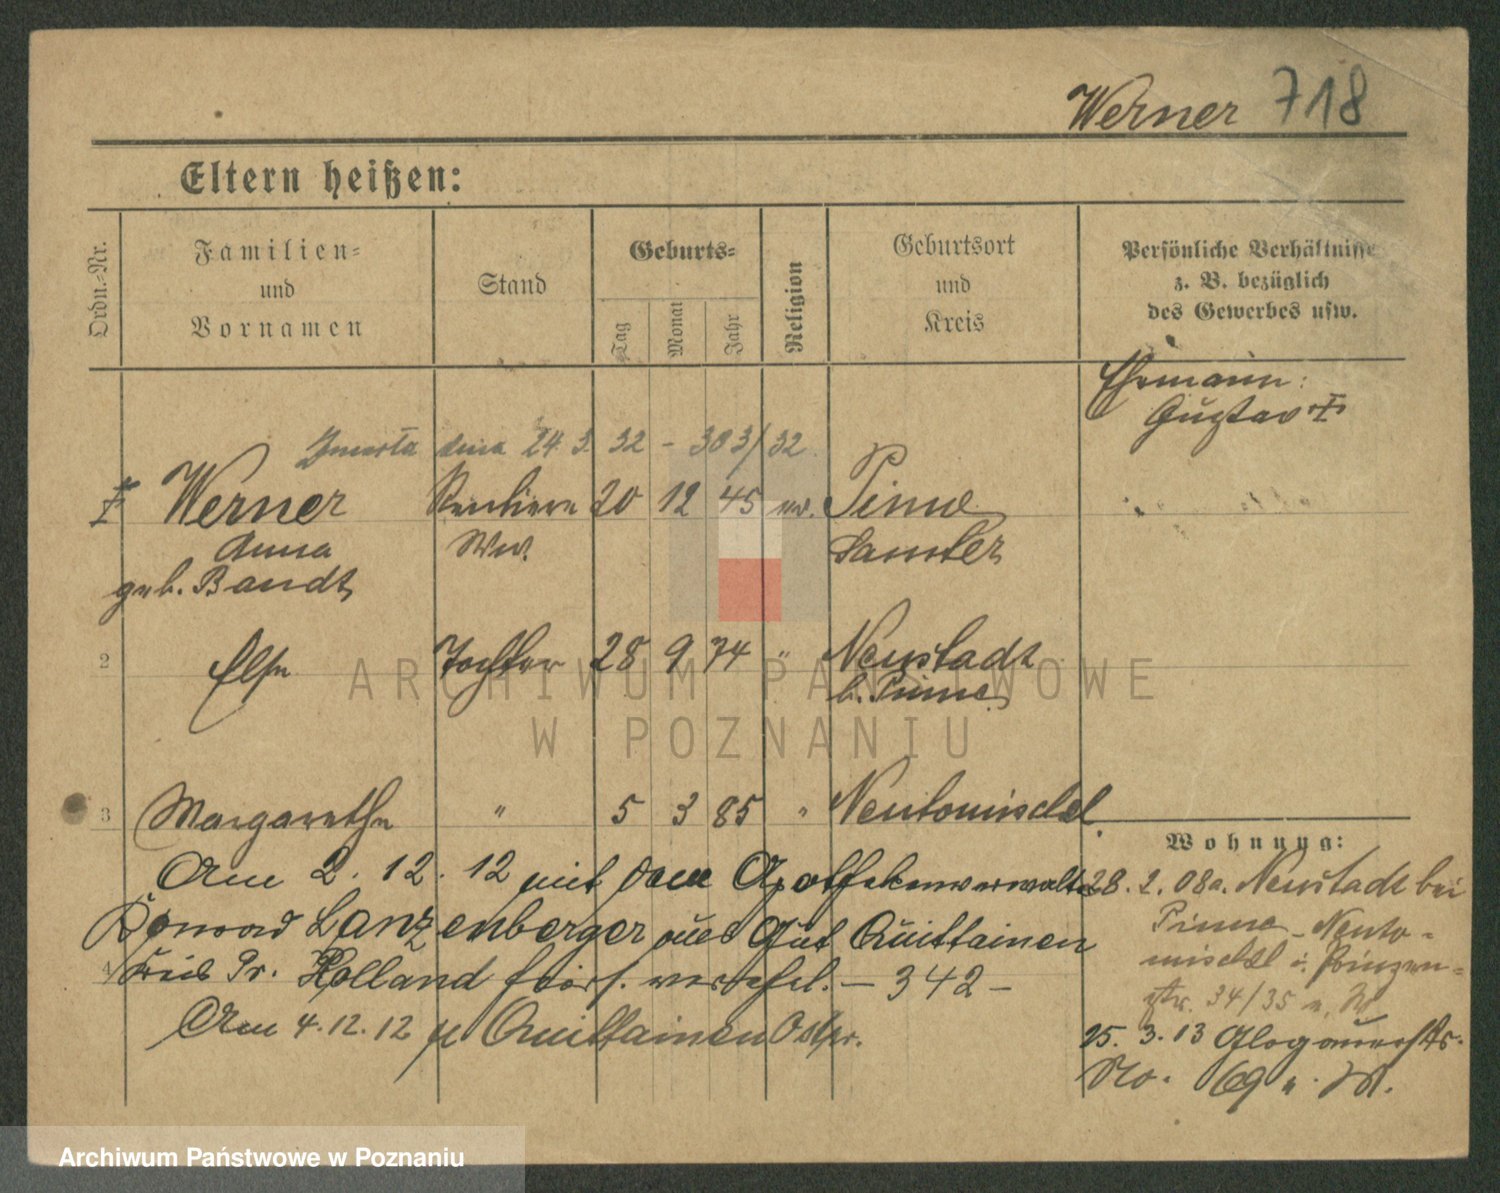 Werner 718
Eltern heißen:
Ordn.-Nr.
Familien-
und
Vornamen
Stand
Geburts-
Tag
Monat
Jahr
Religion
Geburtsort
und
Kreis
Persönliche Verhältnisse
z. B. bezüglich
des Gewerbes usw.
Ehemann:
Gustav †
Zmarła dnia 24. 3. 32 - 383/32.
Werner Rentiere 20 12 45 ev. Pinne
Anna Ww. Samter
geb. Bandt
2 Else Tochter 28 9 74 " Neustadt
b. Pinne
3 Margarethe " 5 3 85 " Neutomischel.
Am 2. 12. 12 mit dem Apothekenverwalter
Konrad Lanzenberger aus Gut Quittainen
4 Kreis Pr. Holland hier verehel. - 342 -
Am 4. 12. 12 n Quittainen Ostpr.
Wohnung:
28. 2. 08 a. Neustadt bei
Pinne - Neuto-
mischel n. Prinzen-
str. 34/35 b. W
25. 3. 13 Glogauerstr.
No. 69 b. W.
ARCHIWUM PAŃSTWOWE
W POZNANIU
Archiwum Państwowe w Poznaniu